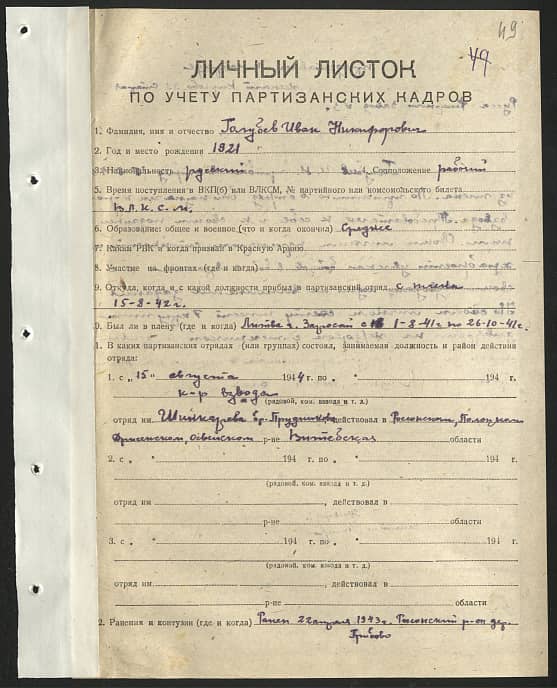 49
49
ЛИЧНЫЙ ЛИСТОК
ПО УЧЕТУ ПАРТИЗАНСКИХ КАДРОВ
1. Фамилия, имя и отчество Голубев Иван Никифорович
2. Год и место рождения 1921
3. Национальность русский 4. Соцположение рабочий
5. Время поступления в ВКП(б) или ВЛКСМ, № партийного или комсомольского билета
В.Л.К.С.М.
6. Образование: общее и военное (что и когда окончил) Среднее
7. Каким РВК и когда призван в Красную Армию
8. Участие на фронтах (где и когда)
9. Откуда, когда и с какой должности прибыл в партизанский отряд с плена
15-8-42 г.
0. Был ли в плену (где и когда) Литва г. Зарасай с 1-8-41г по 26-10-41г.
1. В каких партизанских отрядах (или группах) состоял, занимаемая должность и район действия
отряда:
1. с "15" августа 1944 г. по " 194 г.
к-р взвода
(рядовой, ком. взвода и т. д.)
отряд им Шинкарева бр. Прудникова действовал в Россонском, Полоцком
Дриссенском, Освейском р-не Витебская области
2. с " " 194 г. по " " 194 г.
(рядовой, ком. взвода и т. д.)
отряд им , действовал в
р-не области
3. с " " 194 г. по " " 194 г.
(рядовой, ком. взвода и т. д.)
отряд им , действовал в
р-не области
2. Ранения и контузии (где и когда) Ранен 22 апреля 1943 г. Россонский р-он дер.
Грибово